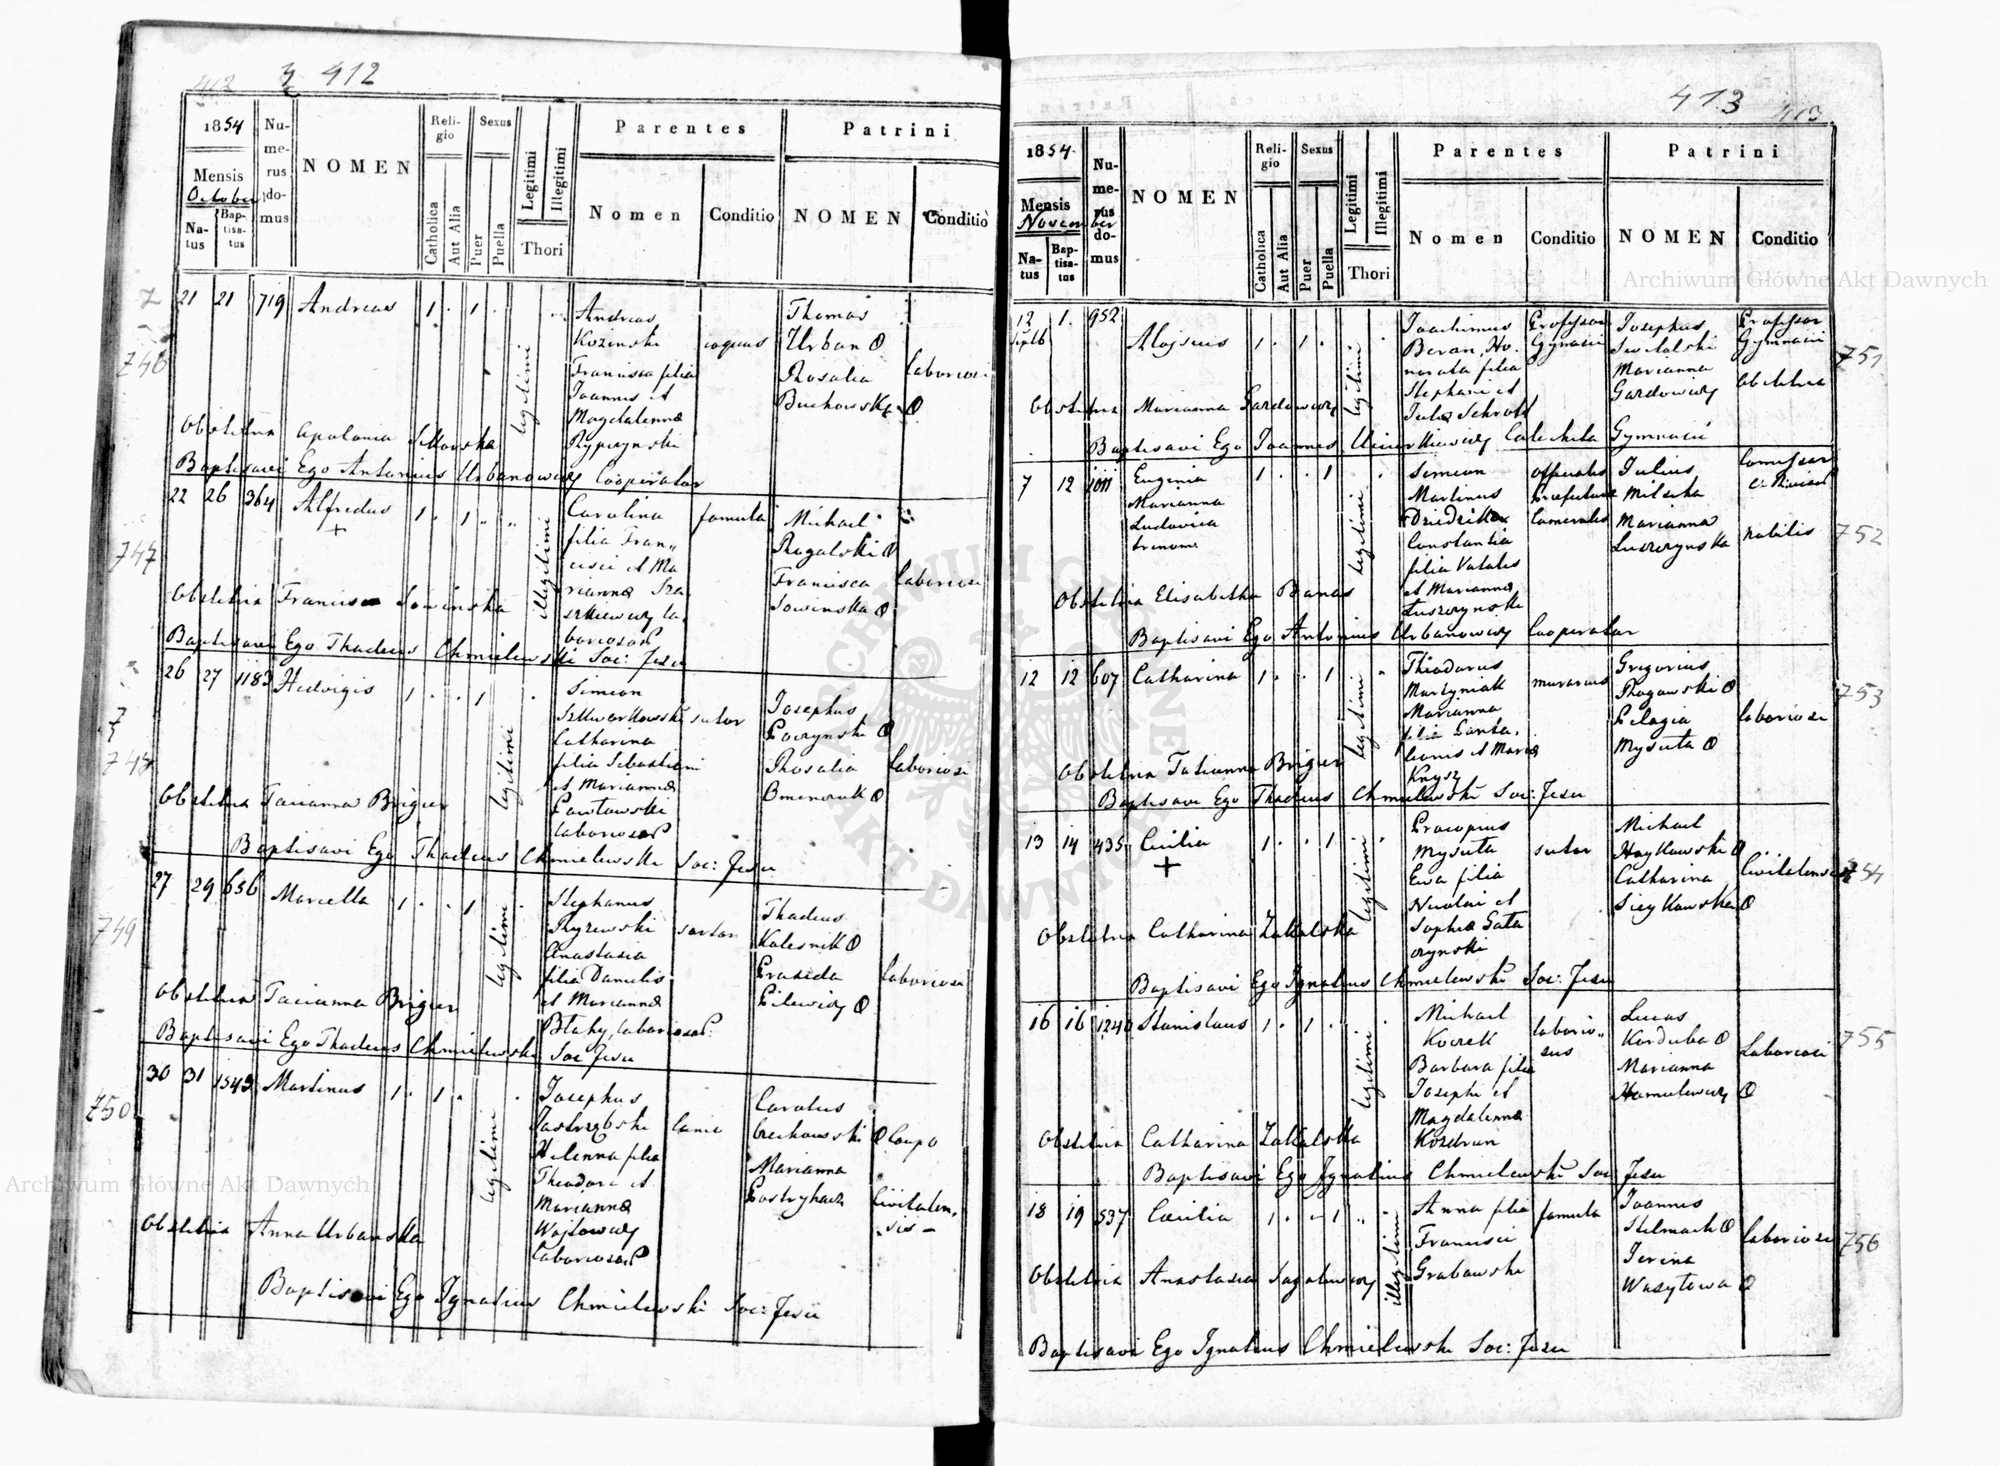 412
3 412
1854
Mensis
October
Natus
Baptisatus
Numerus domus
NOMEN
Religio
Catholica
Aut Alia
Sexus
Puer
Puella
Legitimi
Illegitimi
Thori
Parentes
Nomen
Conditio
Patrini
NOMEN
Conditio
746
21 21 719 Andreas 1 . 1 .
legitimi
Andreas
Kozinski coquus
Francisca filia
Joannis et
Magdalenna
Thomas
Urban
Rosalia
Buchowska
laboriosi
Obstetrix Apolonia
Baptisavi Ego Antonius Urbanowicz Cooperator
747
22 26 364 Alfredus 1 . 1
+
illegitimi
Carolina famula
filia Fran
cisci et Ma
rianna
laboriosor
Michael
Rogalski
Francisca
Sowinska
laboriosi
Obstetrix Francisca Sowinska
Baptisavi Ego Thadeus Chmielewski Soc: Jesu
748
26 27 1183 Hedvigis 1 . . 1
legitimi
Simeon
sutor
Catharina
filia Sebastiani
et Marianna
Pawlowski
laboriosor
Josephus
Paczynski
Rosalia
laboriosi
Obstetrix Tacianna Brigier
Baptisavi Ego Thadeus Chmielewski Soc: Jesu
749
27 29 656 Marcella 1 . . 1
legitimi
Stephanus
Ryzewski sartor
Anastasia
filia Danielis
et Marianna
Blahy, laboriosor:
Thadeus
Kolesnik
Praxeda
Pilewicz
laboriosi
Obstetrix Tacianna Brigier
Baptisavi Ego Thadeus Chmielewski Soc Jesu
750
30 31 1543 Martinus 1 . 1 .
legitimi
Josephus
Jastrzębski lanio
Helenna filia
Theodori et
Marianna
Wojtowicz
laboriosor
Carolus
Czechowski Caupo
Marianna
Civitalen
sis
Obstetrix Anna Urbanska
Baptisavi Ego Ignatius Chmielewski Soc: Jesu
413
413
1854.
Mensis
November
Natus
Baptisatus
Numerus domus
NOMEN
Religio
Catholica
Aut Alia
Sexus
Puer
Puella
Legitimi
Illegitimi
Thori
Parentes
Nomen
Conditio
Patrini
NOMEN
Conditio
751
12 Septb 1. 952 Alojsius 1 . 1 .
legitimi
Joachimus Professor
Beran, Ho- Gymnasii
norata filia
Stephani et
Julia Schrott
Josephus Professor
Gymnasii
Marianna
Gardowicz Obstetrix
Obstetrix Marianna Gardowicz
Baptisavi Ego Joannes Catecheta Gymnasii
752
7 12 1011 Eugenia 1 . . 1
Marianna
Ludovica
trinom
legitimi
Simeon officialis
Martinus Praefectura
Dziedzicki Cameralis
Constantia
filia Vitalis
et Marianna
Luszczynski
Julius
Marianna
Luszczynska nobilis
Obstetrix Elisabetha Banas
Baptisavi Ego Antonius Urbanowicz Cooperator
753
12 12 607 Catharina 1 . . 1
legitimi
Theodorus
Martyniak murarius
Marianna
filia Panta-
leonis et Maria
Knysz
Gregorius
Rogowski
Pelagia
Mysuta
laboriosi
Obstetrix Tatianna Brigier
Baptisavi Ego Thadeus Chmielewski Soc: Jesu
754
13 14 435 Cecilia 1 . . 1
+
legitimi
Procopius
Mysuta sutor
Eva filia
Nicolai et
Sophia Gata
czynski
Michael
Haykowski
Catharina
Civitalenses
Obstetrix Catharina Zakalska
Baptisavi Ego Ignatius Chmielewski Soc: Jesu
755
16 16 1240 Stanislaus 1 . 1 .
legitimi
Michael
Kocek laborio-
sus
Barbara filia
Josephi et
Magdalenna
Kozdrun
Lucas
Korduba
Marianna
Hamulewicz
Laboriosi
Obstetrix Catharina Zakalska
Baptisavi Ego Ignatius Chmielewski Soc: Jesu
756
18 19 537 Cecilia 1 . . 1
illegitimi
Anna filia famula
Francisci
Grabowski
Joannes
Stelmach
Wasylowa
laboriosi
Obstetrix Anastasia
Baptisavi Ego Ignatius Chmielewski Soc: Jesu
ARCHIWUM GŁÓWNE AKT DAWNYCH
Archiwum Główne Akt Dawnych
Archiwum Główne Akt Dawnych